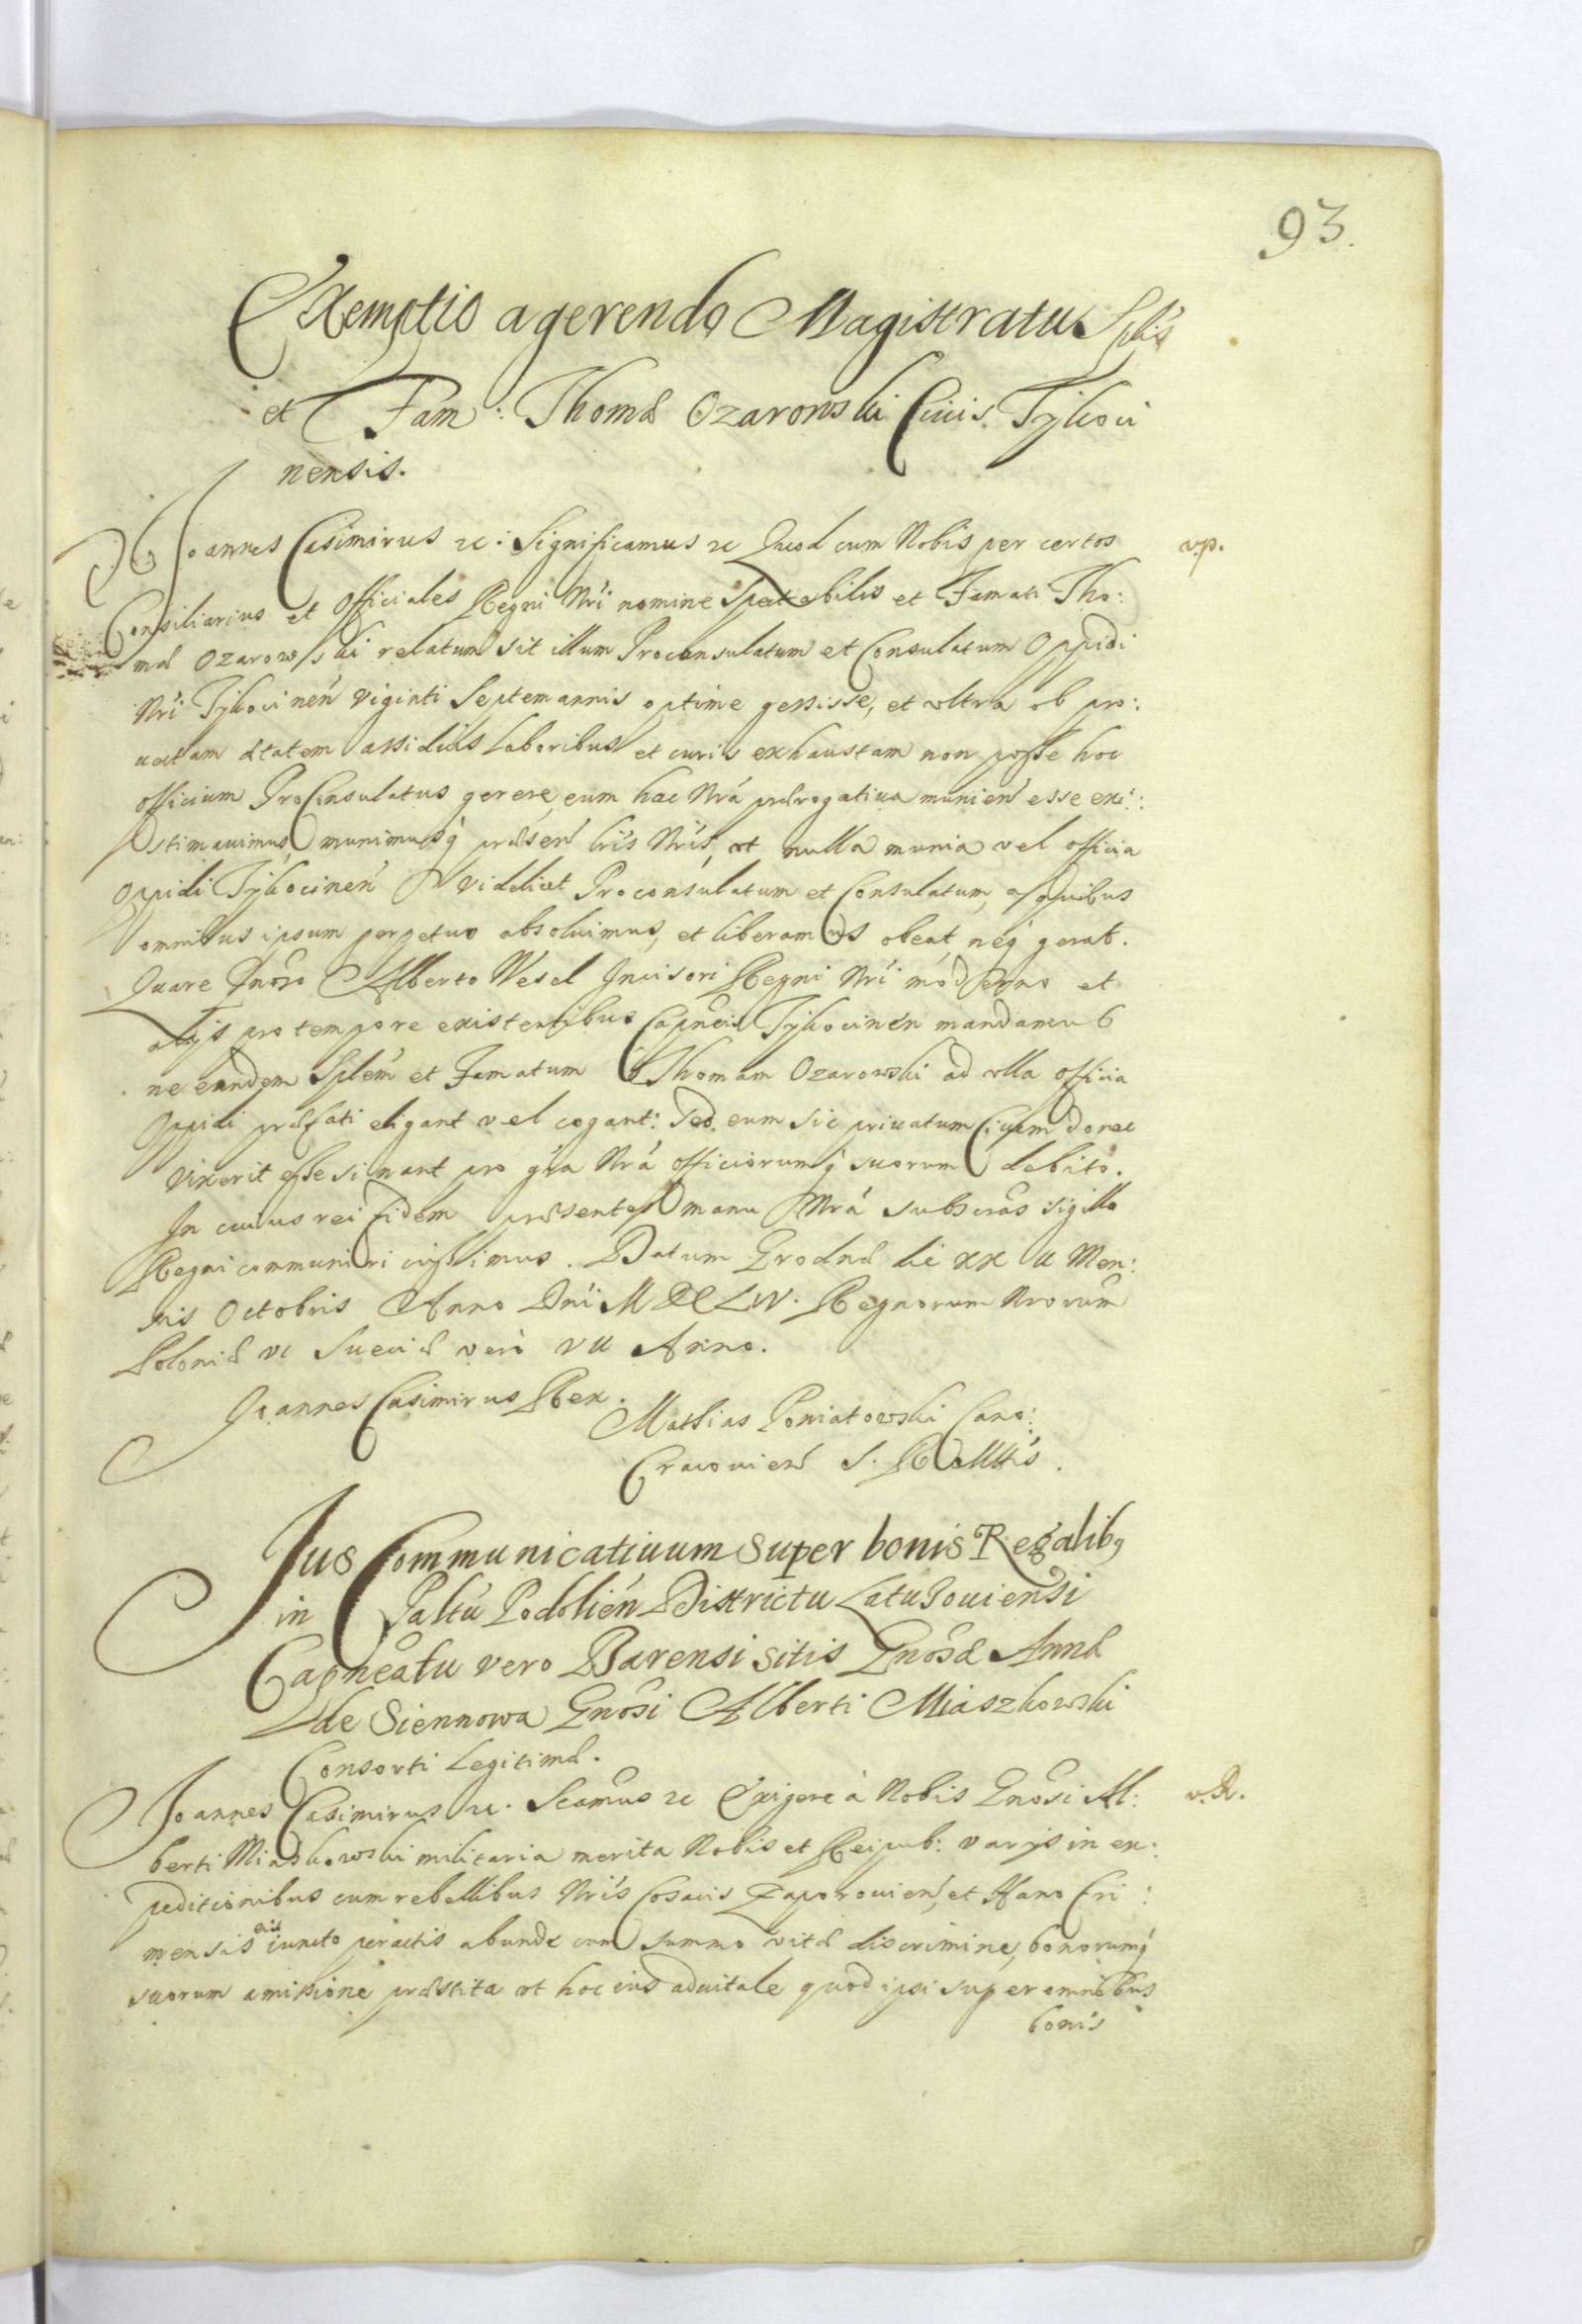 93.
Exemptio a gerendo Magistratu Splis
et Fam: Thomæ Ozarowski Ciuis Tykoci
nensis.
Joannes Casimirus etc: Significamus etc Quod cum Nobis per certos
v.p.
Consiliarios et Officiales Regni Nri nomine Spectabilis et Famati Tho:
mæ Ozarowski relatum sit illum Proconsulatum et Consulatum Oppidi
Nri Tykocinen viginti Septem annis optime gessisse, et vltra ob pro:
uectam ætatem assiduis laboribus et curis exhaustam non posse hoc
officium ProConsulatus gerere, eum hac Nrá prærogatiua munien esse exi:
stimauimus munimusq præsen lris Nris, vt nulla munia vel officia
Oppidi Tykocinen videlicet Proconsulatum et Consulatum, a quibus
omnibus ipsum perpetuo absoluimus, et liberamus obeat neq gerat.
Quare Gnoso Alberto Wesel Incisori Regni Nri moderno et
alijs pro tempore existentibus Capneis Tykocinen mandamus
ne eundem Splem et Famatum Thomam Ozarowski ad vlla officia
Oppidi præfati eligant vel cogant: Sed eum sic priuatum Ciuem donec
vixerit esse sinant pro gra Nrá officiorumq suorum debito.
In cuius rei fidem præsentes manu Nrá subscras sigillo
Regni communiri iussimus. Datum Grodnæ die XX II Men:
sis Octobris Anno Dni MDCLIV. Regnorum Nrorum
Poloniæ VI Sueciæ vero VII Anno.
Joannes Casimirus Rex.
Mathias Poniatowski Cano:
Cracouien S. R. Mttis.
Jus Communicatiuum super bonis Regalib9
in Paltu Podolien Districtu Latyczouiensi
Capneatu vero Barensi sitis Gnosæ Annæ
de Siennowa Gnosi Alberti Miaszkowski
Consorti Legitimæ.
Joannes Casimirus etc. Scamus etc Exigere à Nobis Gnosi Al:
v.R.
berti Miaskowski militaria merita Nobis et Reipub: varijs in ex:
peditionibus cum rebellibus Nris Cosacis Zaporouien, et Hano Cri:
mensi eis iuncto peractis abunde cum summo vitæ discrimine, bonorumq
suorum amissione præstita vt hoc ius aduitale quod ipsi super omnibus
bonis